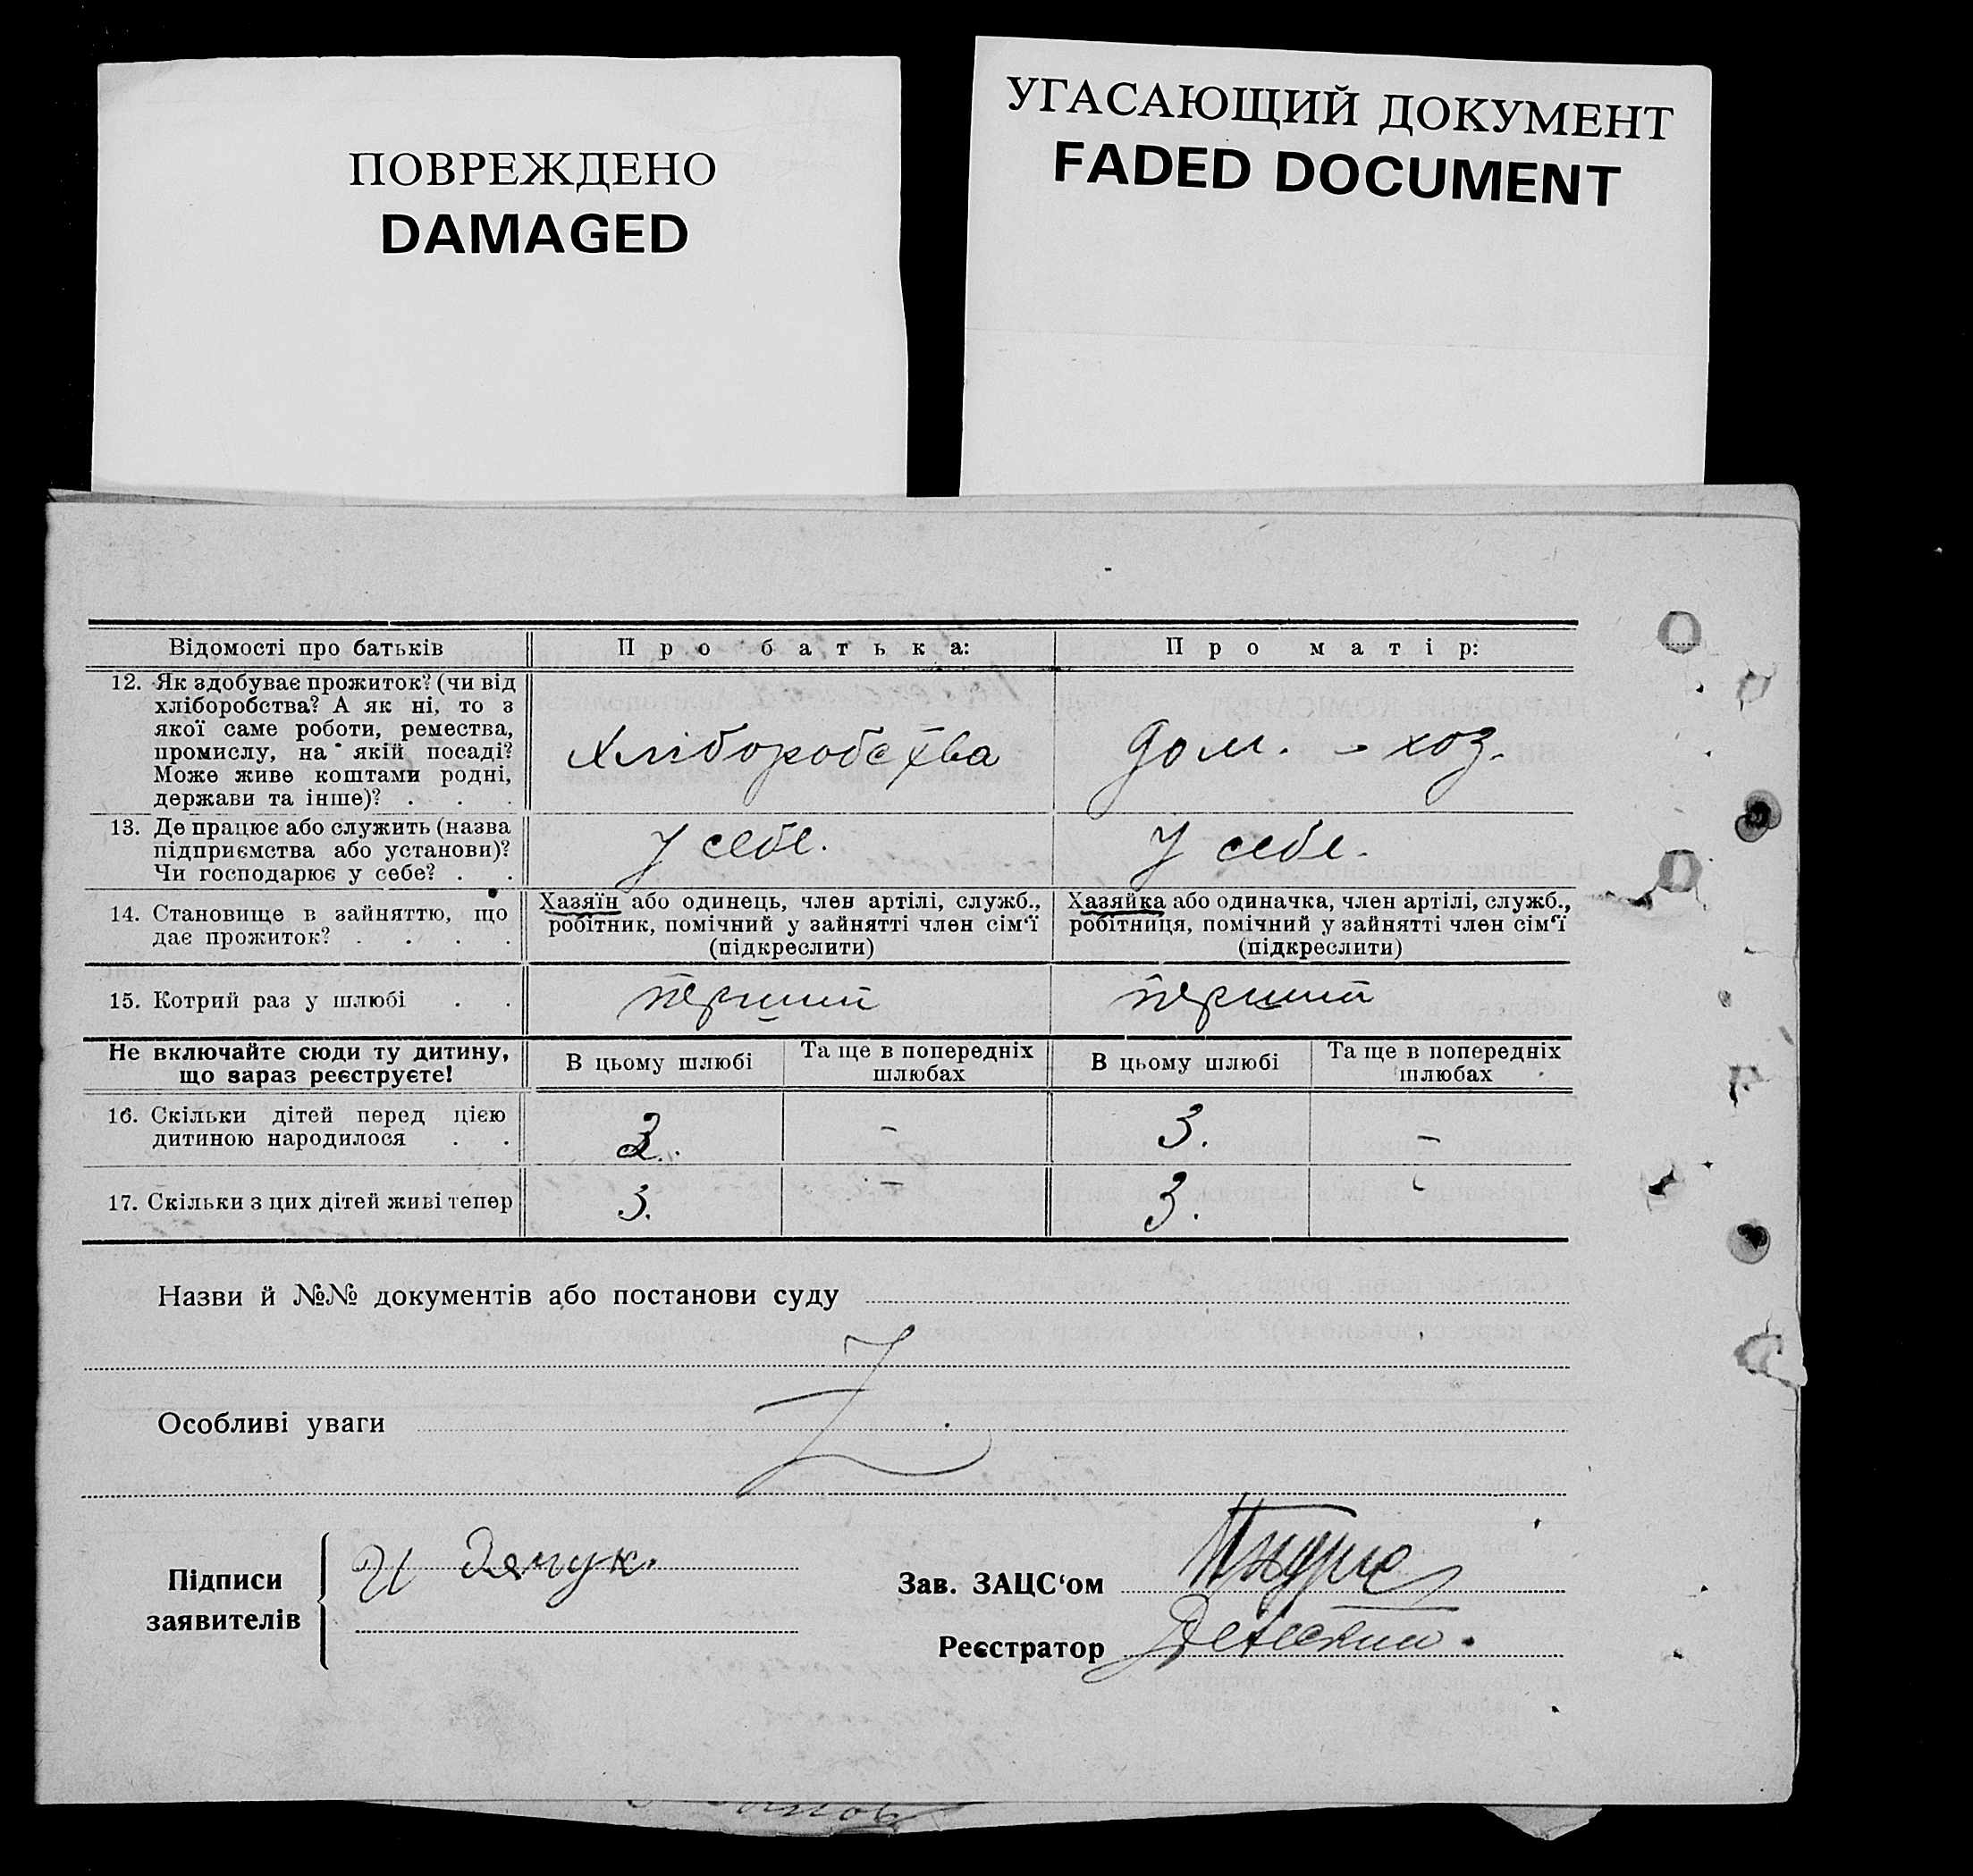 ПОВРЕЖДЕНО
DAMAGED
УГАСАЮЩИЙ ДОКУМЕНТ
FADED DOCUMENT
Відомості про батьків
Про батька:
Про матір:
12. Як здобуває прожиток? (чи від
хліборобства? А як ні, то з
якої саме роботи, ремества,
промислу, на якій посаді?
Може живе коштами родні,
держави та інше)? . . .
Хліборобства
Дом. - хоз.
13. Де працює або служить (назва
підприємства або установи)?
Чи господарює у себе? . .
У себе.
У себе.
14. Становище в зайняттю, що
дає прожиток? . . . .
Хазяїн або одинець, член артілі, служб.,
робітник, помічний у зайнятті член сім'ї
(підкреслити)
Хазяйка або одиначка, член артілі, служб.,
робітниця, помічний у зайнятті член сім'ї
(підкреслити)
15. Котрий раз у шлюбі . .
перший
перший
Не включайте сюди ту дитину,
що зараз реєструєте!
В цьому шлюбі
Та ще в попередніх
шлюбах
В цьому шлюбі
Та ще в попередніх
шлюбах
16. Скільки дітей перед цією
дитиною народилося . .
3.
-
3.
-
17. Скільки з цих дітей живі тепер
3.
-
3.
-
Назви й №№ документів або постанови суду
Z
Особливі уваги
Підписи
заявителів
Зав. ЗАЦС'ом
Реєстратор